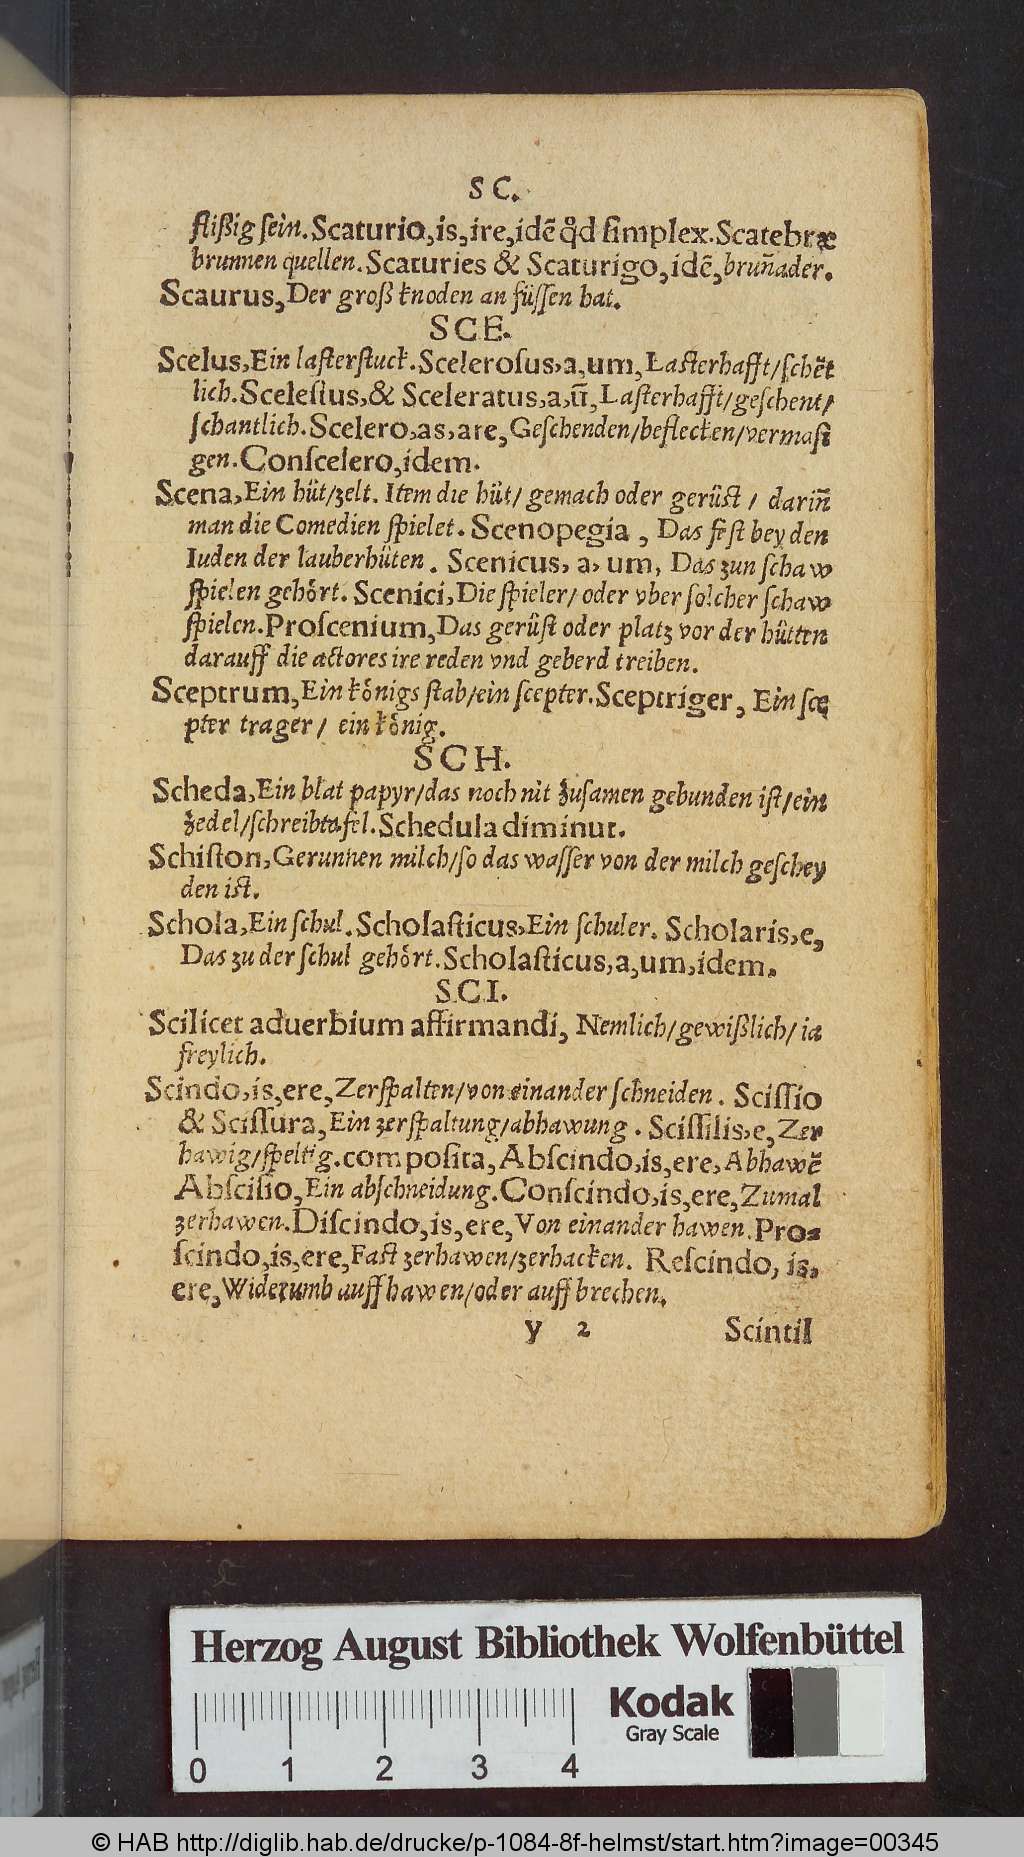 S C.
flißig sein. Scaturio, is, ire, idē qͦd simplex. Scatebræ
brunnen quellen. Scaturies & Scaturigo, idē, brun̄ader.
Scaurus, Der groß knoden an füssen hat.
S C E.
Scelus, Ein lasterstuck. Scelerosus, a, um, Lasterhafft/schēt
lich. Scelestus, & Sceleratus, a, ū, Lasterhafft/geschent/
schantlich. Scelero, as, are, Geschenden/beflecken/vermasi
gen. Conscelero, idem.
Scena, Ein hüt/zelt. Item die hüt/ gemach oder gerüst / darin̄
man die Comedien spielet. Scenopegia , Das fest bey den
Iuden der lauberhüten . Scenicus, a, um, Das zun schaw
spielen gehört. Scenici, Die spieler/ oder vber solcher schaw
spielen. Proscenium, Das gerüst oder platz vor der hütten
darauff die actores ire reden vnd geberd treiben.
Sceptrum, Ein königs stab/ein scepter. Sceptriger, Ein sce
pter trager/ ein könig.
S C H.
Scheda, Ein blat papyr/das noch nit zusamen gebunden ist/ein
zedel/schreibtafel. Schedula diminut.
Schiston, Gerunnen milch/so das wasser von der milch geschey
den ist.
Schola, Ein schul. Scholasticus, Ein schuler. Scholaris, e,
Das zu der schul gehört. Scholasticus, a, um, idem.
S C I.
Scilicet aduerbium affirmandi, Nemlich/gewißlich/ia
freylich.
Scindo, is, ere, Zerspalten/von einander schneiden. Scissio
& Scissura, Ein zerspaltung/abhawung . Scissilis, e, Zer
hawig/speltig. composita, Abscindo, is, ere, Abhawē
Abscisio, Ein abschneidung. Conscindo, is, ere, Zumal
zerhawen. Discindo, is, ere, Von einander hawen. Pro-
scindo, is, ere, Fast zerhawen/zerhacken. Rescindo, is,
ere, Widerumb auff hawen/oder auff brechen.
y 2 Scintil
Herzog August Bibliothek Wolfenbüttel
Kodak
Gray Scale
0 1 2 3 4
© HAB http://diglib.hab.de/drucke/p-1084-8f-helmst/start.htm?image=00345